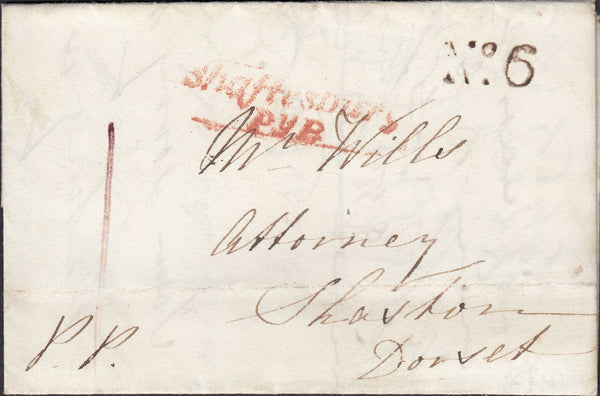 No. 6
Shaftesbury
Py P.
Mr. Wills
Attorney
Shaston
Dorset
P.P.
1